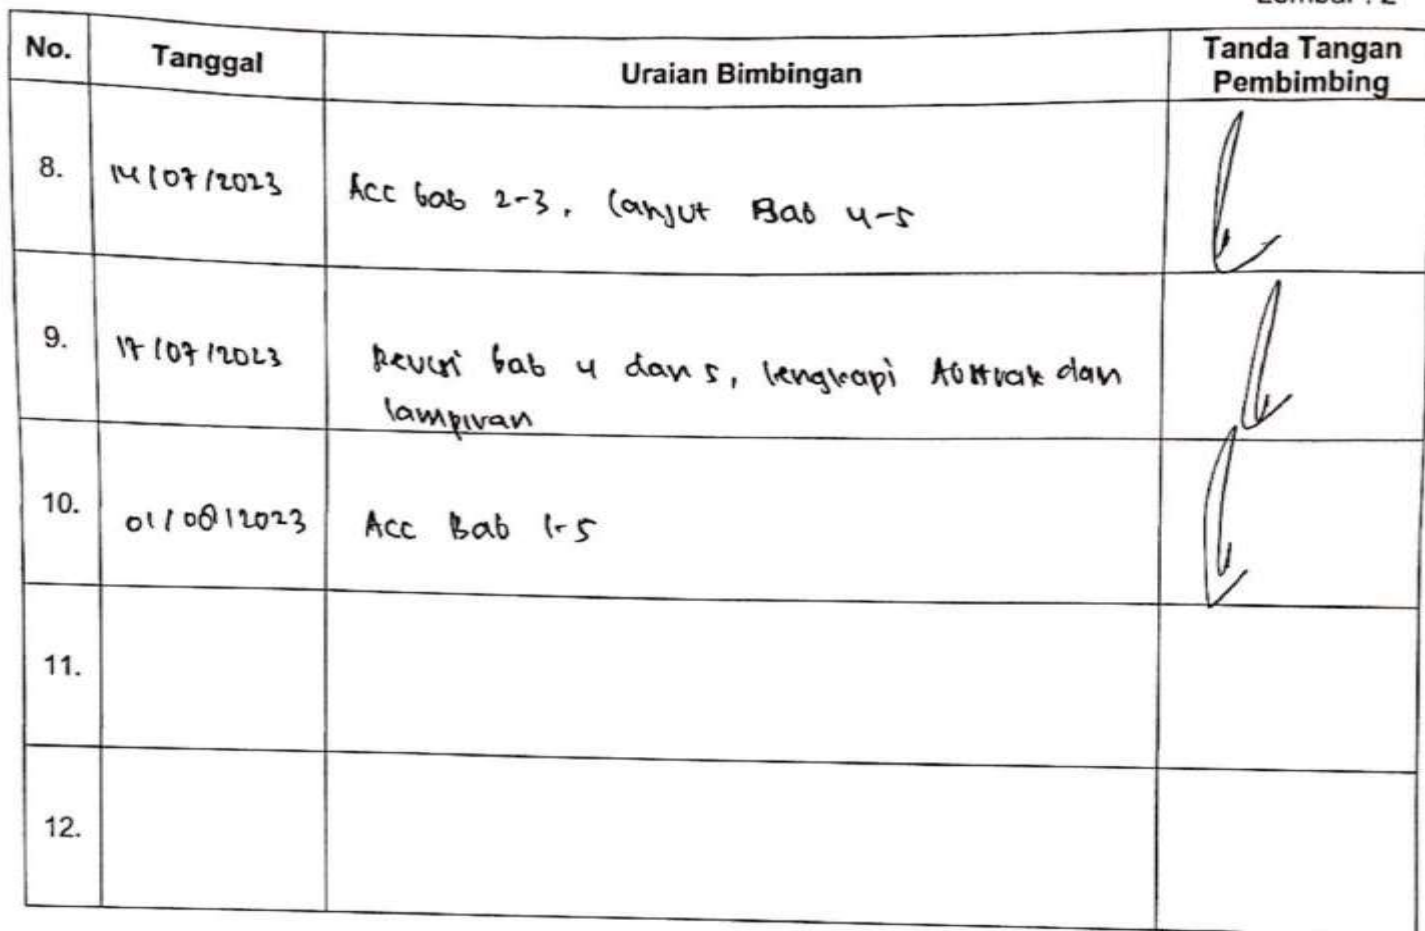 No. Tanggal Uraian Bimbingan Tanda Tangan
Pembimbing
8. 14/07/2023 Acc bab 2-3, lanjut Bab 4-5
9. 17/07/2023 Revisi bab 4 dan 5, lengkapi Abstrak dan
lampiran
10. 01/08/2023 Acc Bab 1-5
11.
12.